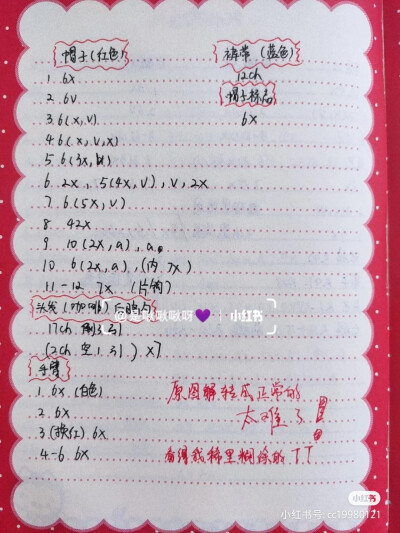 帽子(红色)
1. 6x
2. 6v
3. 6(x,v)
4. 6(x,v,x)
5. 6(3x,v)
6. 2x, 5(4x,v), v, 2x
7. 6(5x,v)
8. 42x
9. 10(2x,a), a。
10. 6(2x,a), (内7x)
11.-12 7x (片钩)
头发(咖啡)后脑勺
17ch, 倒3, 31
(2ch.空1.引) x7
手臂
1. 6x. (白色)
2. 6x
3(换红) 6x
4-6. 6x
裤带(蓝色)
12ch
帽子标志
6x
原图解 正常的
太难了!
看得我稀里糊涂的TT
@是啾啾啾呀💜 小红书
小红书
小红书号: cc19980121